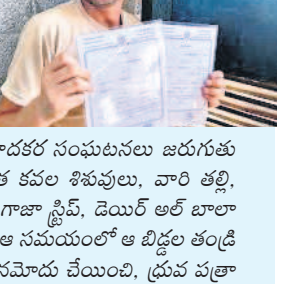 దకర సంఘటనలు జరుగుతు
త కవల శిశువులు, వారి తల్లి,
గాజా స్ట్రిప్, డెయిర్ అల్ బాలా
ఆ సమయంలో ఆ బిడ్డల తండ్రి
నమోదు చేయించి, ధ్రువ పత్రా